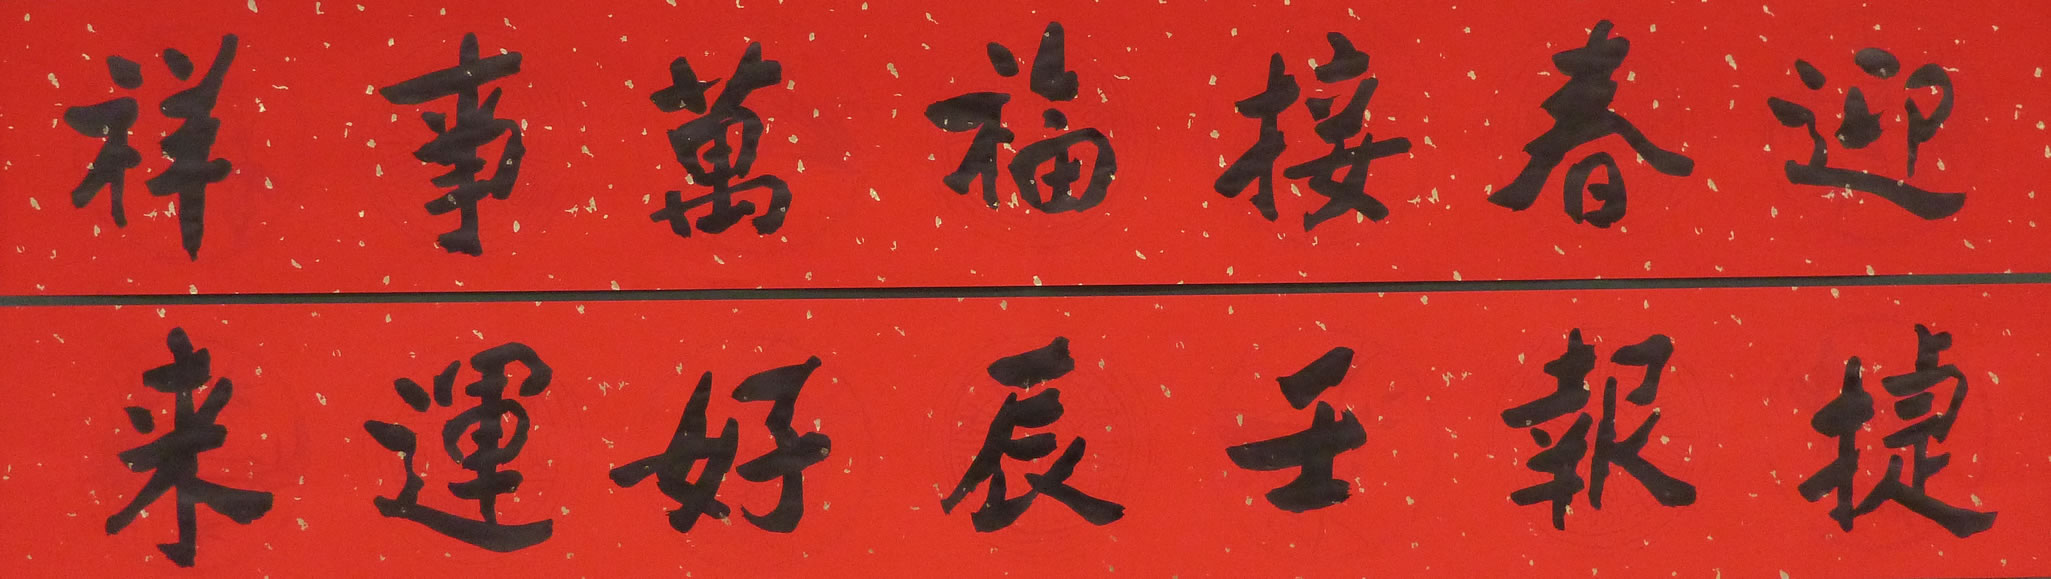 迎春接福萬事祥
捷報壬辰好運来